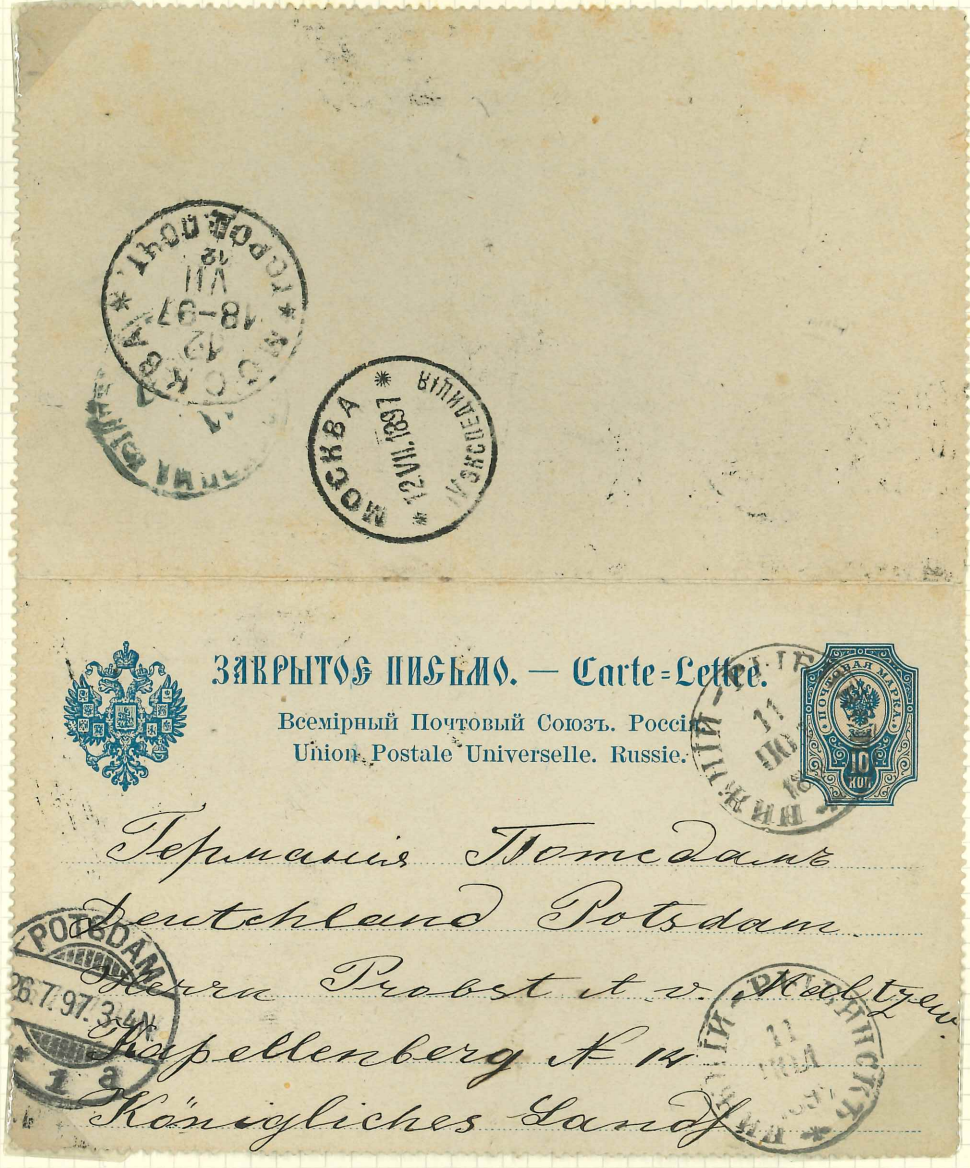 МОСКВА
ГОРОД. ПОЧТ.
12
18-97
VII
12
МОСКВА
12 VII. 1897
ЭКСПЕДИЦІЯ
ЗАКРЫТОЕ ПИСЬМО. — Carte-Lettre.
Всемірный Почтовый Союзъ. Россія
Union Postale Universelle. Russie.
ПОЧТОВАЯ МАРКА.
10
КОП
11
Германія Потсдамъ
Deutchland Potsdam.
Herrn Probst A. v. Maltzew
Kapellenberg № 14
Königliches Land
POTSDAM
26.7.97. 3-4N.
1 a
11
ІЮЛ
1897